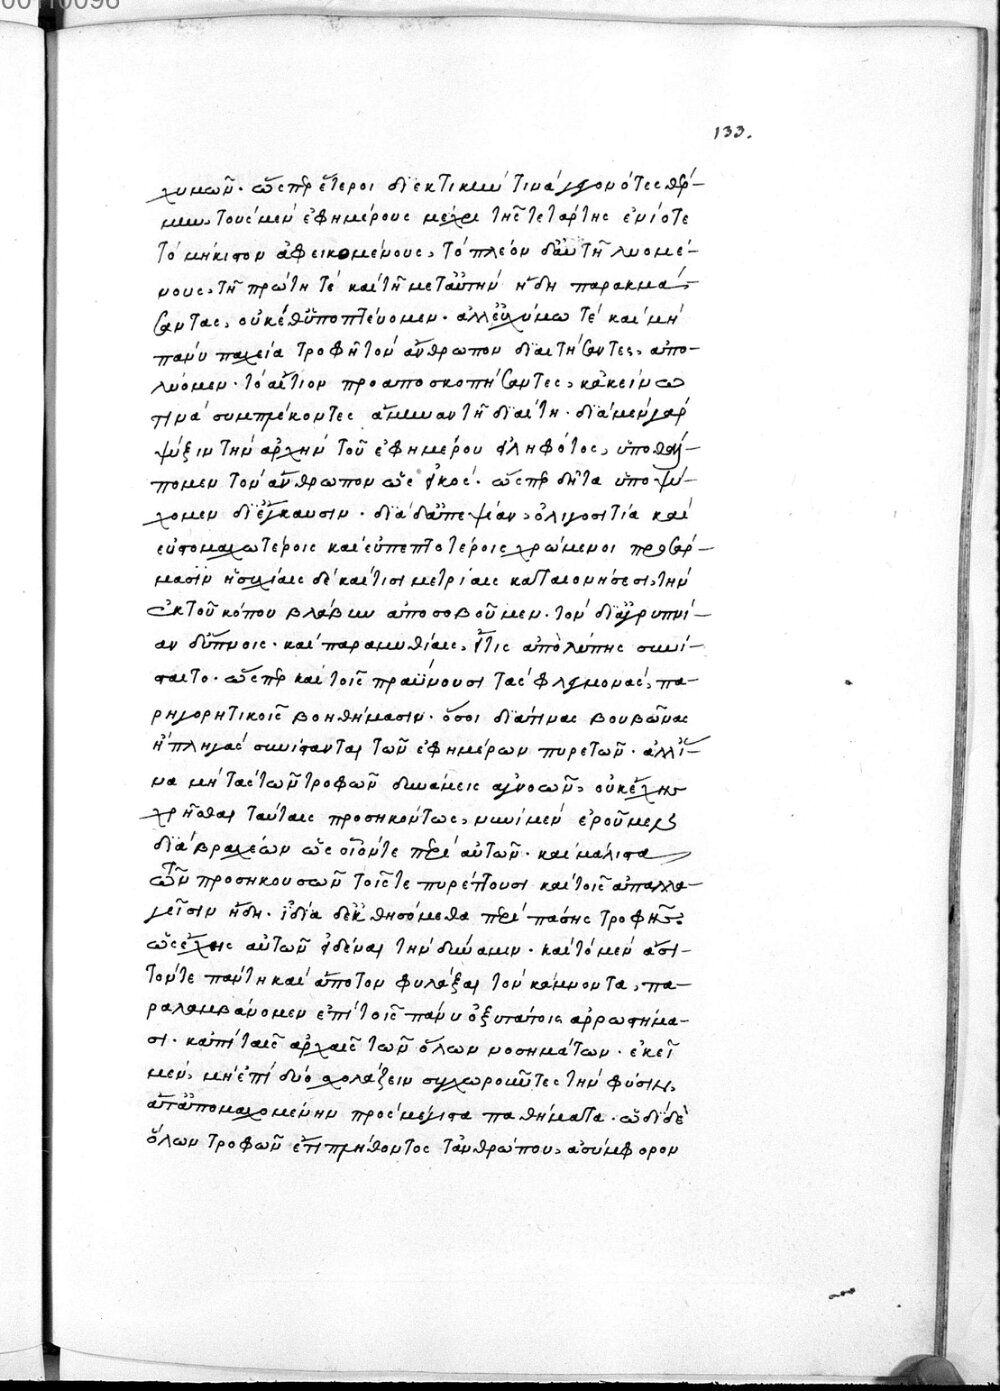 00110096
133.
χυμῶν. ὥσπερ ἕτεροι δι' ἑκτικήν τινα γεγονότες θέρ-
μην. τοὺς μὲν ἐφημέρους μέχρι τῆς τετάρτης ἐνίοτε
τὸ μήκιστον ἀφεικομένους, τὸ πλέον δ' αὐτῇ λυομέ-
νους, τῇ πρώτῃ τὲ καὶ τῇ μετ' αὐτὴν ἤδη παρακμά-
σαντας, οὐκέθ' ὑποπτεύομεν. ἀλλ' εὐχύμω τὲ καὶ μὴ
πάνυ παχεία τροφῇ τὸν ἄνθρωπον διαιτήσαντες, ἀπο-
λύομεν. τὸ αἴτιον προαποσκοπήσαντες, κἀκείνω
τινὰ συμπλέκοντες ἄμυναν τῇ διαίτη. διὰ μὲν γὰρ
ψύξιν τὴν ἀρχὴν τοῦ ἐφημέρου εἰληφότος, ὑποθάλ-
πομεν τὸν ἄνθρωπον ὡς εἰκός. ὥσπερ δῆτα ὑποψύ-
χομεν δι' ἔγκαυσιν. διὰ δ' ἀπεψίαν, ὀλιγοσιτία καὶ
εὐστομαχωτέροις καὶ εὐπεπτοτέροις χρώμενοι προσάρ-
μασιν ἡσυχίαις δὲ καὶ τισὶ μετρίαις καταιονήσεσι, τὴν
ἐκ τοῦ κόπου βλάβην ἀποσοβοῦμεν. τὸν δι' ἀγρυπνί-
αν δ' ὕπνοις. καὶ παραμυθίαις, εἴ τις ἀπὸ λύπης συνί-
σταιτο. ὥσπερ καὶ τοῖς πραΰνουσι τὰς φλεγμονάς, πα-
ρηγορητικοῖς βοηθήμασιν. ὅσοι διά τινας βουβῶνας
ἢ πληγὰς συνίστανται τῶν ἐφημέρων πυρετῶν. ἀλλ' ἵ-
να μὴ τὰς τῶν τροφῶν δυνάμεις ἀγνοῶν, οὐκ ἔχῃς
χρῆσθαι ταύταις προσηκόντως, νυνὶ μὲν ἐροῦμεν
διὰ βραχέων ὡς οἷόντε περὶ αὐτῶν. καὶ μάλιστα
τῶν προσηκουσῶν τοῖς τε πυρέττουσι καὶ τοῖς ἀπαλλα-
γεῖσιν ἤδη. ἰδία δ' ἐκθησόμεθα περὶ πάσης τροφῆς,
ὡς ἔχῃς αὐτῶν εἰδέναι τὴν δύναμιν. καὶ τὸ μὲν ἄσι-
τόν τε πάντη καὶ ἄποτον φυλάξαι τὸν κάμνοντα, πα-
ραλαμβάνομεν ἐπὶ τοῖς πάνυ ὀξυτάτοις ἀρρωστήμα-
σι. κἀπὶ ταῖς ἀρχαῖς τῶν ὅλων νοσημάτων. ἐκεῖ
μὲν, μὴ ἐπὶ δύο σχολάζειν συγχωροῦντες τὴν φύσιν,
ἅτ' ἀπομαχομένην πρὸς μέγιστα παθήματα. ὧδὶ δὲ
ὅλων τροφῶν ἔτι πλήθοντος τἀνθρώπου, ἀσύμφορον